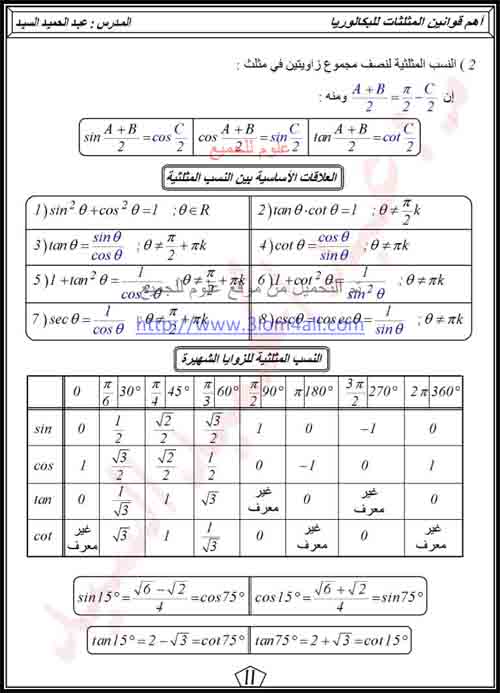 أهم قوانين المثلثات للبكالوريا
المدرس : عبد الحميد السيد
2 ) النسب المثلثية لنصف مجموع زاويتين في مثلث :
إن (A + B)/2 = π/2 − C/2 ومنه :
sin (A + B)/2 = cos C/2 | cos (A + B)/2 = sin C/2 | tan (A + B)/2 = cot C/2
علوم للجميع
العلاقات الأساسية بين النسب المثلثية
1) sin² θ + cos² θ = 1 ; θ ∈ R | 2) tan θ · cot θ = 1 ; θ ≠ π/2 k
3) tan θ = sin θ / cos θ ; θ ≠ π/2 + πk | 4) cot θ = cos θ / sin θ ; θ ≠ πk
5) 1 + tan² θ = 1 / cos² θ ; θ ≠ π/2 + πk | 6) 1 + cot² θ = 1 / sin² θ ; θ ≠ πk
تم التحميل من موقع علوم للجميع
7) sec θ = 1 / cos θ ; θ ≠ π/2 + πk | 8) csc θ = cosec θ = 1 / sin θ ; θ ≠ πk
http://www.3lom4all.com
النسب المثلثية للزوايا الشهيرة
0 | π/6 30° | π/4 45° | π/3 60° | π/2 90° | π 180° | 3π/2 270° | 2π 360°
sin | 0 | 1/2 | √2/2 | √3/2 | 1 | 0 | −1 | 0
cos | 1 | √3/2 | √2/2 | 1/2 | 0 | −1 | 0 | 1
tan | 0 | 1/√3 | 1 | √3 | غير معرف | 0 | غير معرف | 0
cot | غير معرف | √3 | 1 | 1/√3 | 0 | غير معرف | 0 | غير معرف
sin 15° = (√6 − √2)/4 = cos 75° | cos 15° = (√6 + √2)/4 = sin 75°
tan 15° = 2 − √3 = cot 75° | tan 75° = 2 + √3 = cot 15°
11